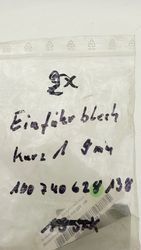 2x
Einführblech
kurz 1 9 min
100 740 628 138